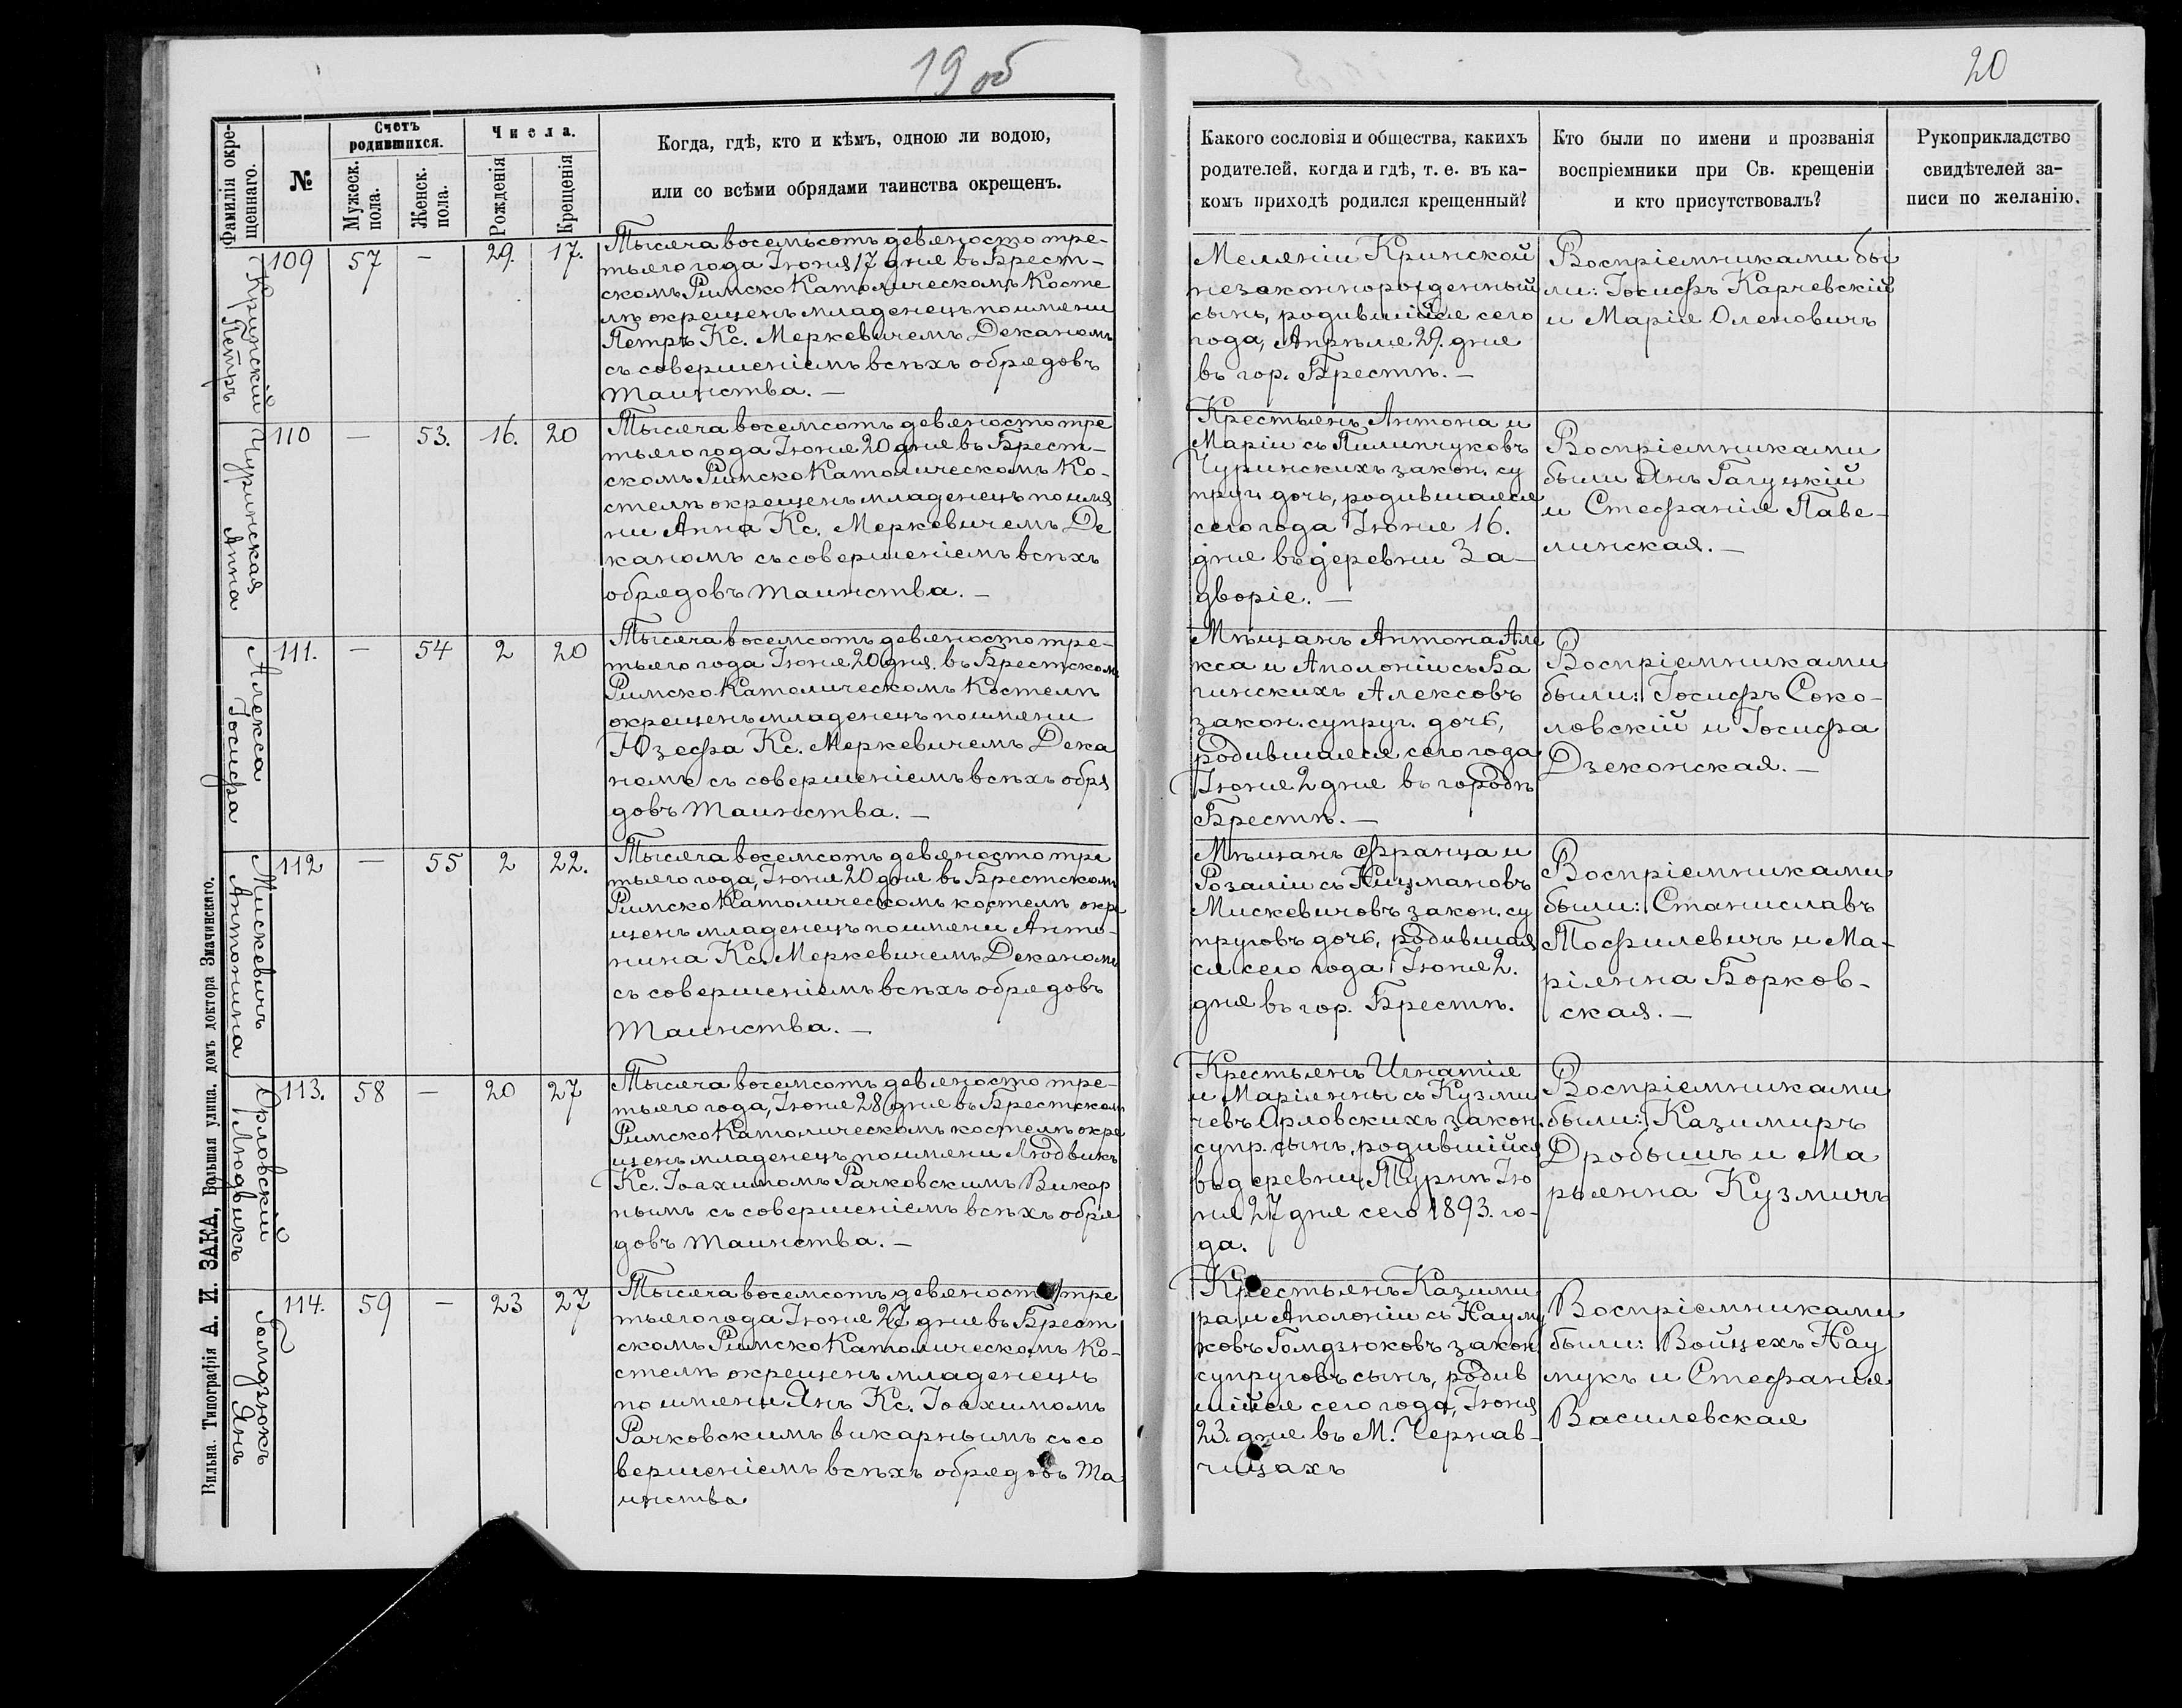 19 об
20
Фамилія окре-
щеннаго.
№
Счетъ
родившихся.
Мужеск.
пола.
Женск.
пола.
Числа.
Рожденія
Крещенія
Когда, гдѣ, кто и кѣмъ, одною ли водою,
или со всѣми обрядами таинства окрещенъ.
Какого сословія и общества, какихъ
родителей, когда и гдѣ, т. е. въ ка-
комъ приходѣ родился крещенный?
Кто были по имени и прозванія
воспріемники при Св. крещеніи
и кто присутствовалъ?
Рукоприкладство
свидѣтелей за-
писи по желанію.
Кринскій
Петръ
109 57 — 29. 17.
Тысяча восемьсотъ девяносто тре-
тьяго года Іюня 17 дня въ Брест-
скомъ Римско Католическомъ Косте
лѣ окрещенъ младенецъ по имени
Петръ Кс. Меркевичемъ Деканомъ
съ совершеніемъ всѣхъ обрядовъ
Таинства. —
Меляніи Кринской
незаконнорожденный
сынъ, родившійся сего
года, Апрѣля 29. дня
въ гор. Брестѣ. —
Воспріемниками бы
ли: Іосифъ Карчевскій
и Марія Олеповичъ
Чуринская
Анна
110 — 53. 16. 20
Тысяча восемсотъ девяносто тре
тьяго года Іюня 20 дня въ Брест-
скомъ Римско Католическомъ Ко-
стелѣ окрещенъ младенецъ по имя
ни Анна Кс. Меркевичемъ Де
каномъ съ совершеніемъ всѣхъ
обрядовъ таинства. —
Крестьянъ Антона и
Маріи съ Пилипчуковъ
Чуринскихъ закон. су
пруг. дочь, родившаяся
сего года Іюня 16.
дня въ деревни За-
дворіе. —
Воспріемниками
были Янъ Галуцкій
и Стефанія Паве-
линская. —
Алекса
Іосифа
111. — 54 2 20
Тысяча восемсотъ девяносто тре-
тьяго года Іюня 20 дня. въ Брестскомъ
Римско Католическомъ Костелѣ
окрещенъ младенецъ по имени
Юзефа Кс. Меркевичемъ Дека
номъ съ совершеніемъ всѣхъ обря
довъ Таинства. —
Мѣщанъ Антона Але
кса и Аполоніи съ Ба
гинскихъ Алексовъ
закон. супруг. дочь,
родившаяся сего года
Іюня 2 дня въ городѣ
Брестѣ. —
Воспріемниками
были: Іосифъ Соко-
ловскій и Іосифа
Дзеконская. —
Мискевичъ
Антонина
112 — 55 2 22.
Тысяча восемсотъ девяносто тре
тьяго года, Іюня 20 дня въ Брестскомъ
Римско Католическомъ костелѣ окре
щенъ младенецъ по имени Анто-
нина Кс. Меркевичемъ Деканомъ
съ совершеніемъ всѣхъ обрядовъ
Таинства. —
Мѣщанъ Франца и
Розаліи съ Ницмановъ
Мискевичовъ закон. су
пруговъ дочь, родившая
ся сего года Іюня 2.
дня въ гор. Брестѣ.
Воспріемниками
были: Станиславъ
Тосфилевичъ и Ма-
ріянна Борков-
ская. —
Орловскій
Людвикъ
113. 58 — 20 27
Тысяча восемсотъ девяносто тре-
тьяго года, Іюня 28 дня въ Брестскомъ
Римско Католическомъ костелѣ окре
щенъ младенецъ по имени Людвикъ
Кс. Іоахимомъ Рачковскимъ Викар
нымъ съ совершеніемъ всѣхъ обря
довъ таинства. —
Крестьянъ Игнатія
и Маріянны съ Кузми
чевъ Орловскихъ закон.
супр. сынъ, родившійся
въ деревни Турнѣ Ію
ня 27 дня сего 1893. го-
да.
Воспріемниками
были: Казимиръ
Дробышъ и Ма
рьянна Кузмичъ
Голидзюкъ
Янъ
114. 59 — 23 27
Тысяча восемсотъ девяносто тре
тьяго года Іюня 27 дня въ Брест
скомъ Римско Католическомъ Ко-
стелѣ окрещенъ младенецъ
по имени Янъ Кс. Іоахимомъ
Рачковскимъ викарнымъ съ со
вершеніемъ всѣхъ обрядовъ Та
инства
Крестьянъ Казими
ра и Аполоніи съ Науму
ковъ Гомдзюковъ закон.
супруговъ сынъ, родив
шійся сего года, Іюня
23. дня въ М. Чернав-
чицахъ
Воспріемниками
были: Войцехъ Нау
мукъ и Стефанія
Василевская
Вильна. Типографія А. И. ЗАКА, Большая улица, домъ доктора Змачинскаго.